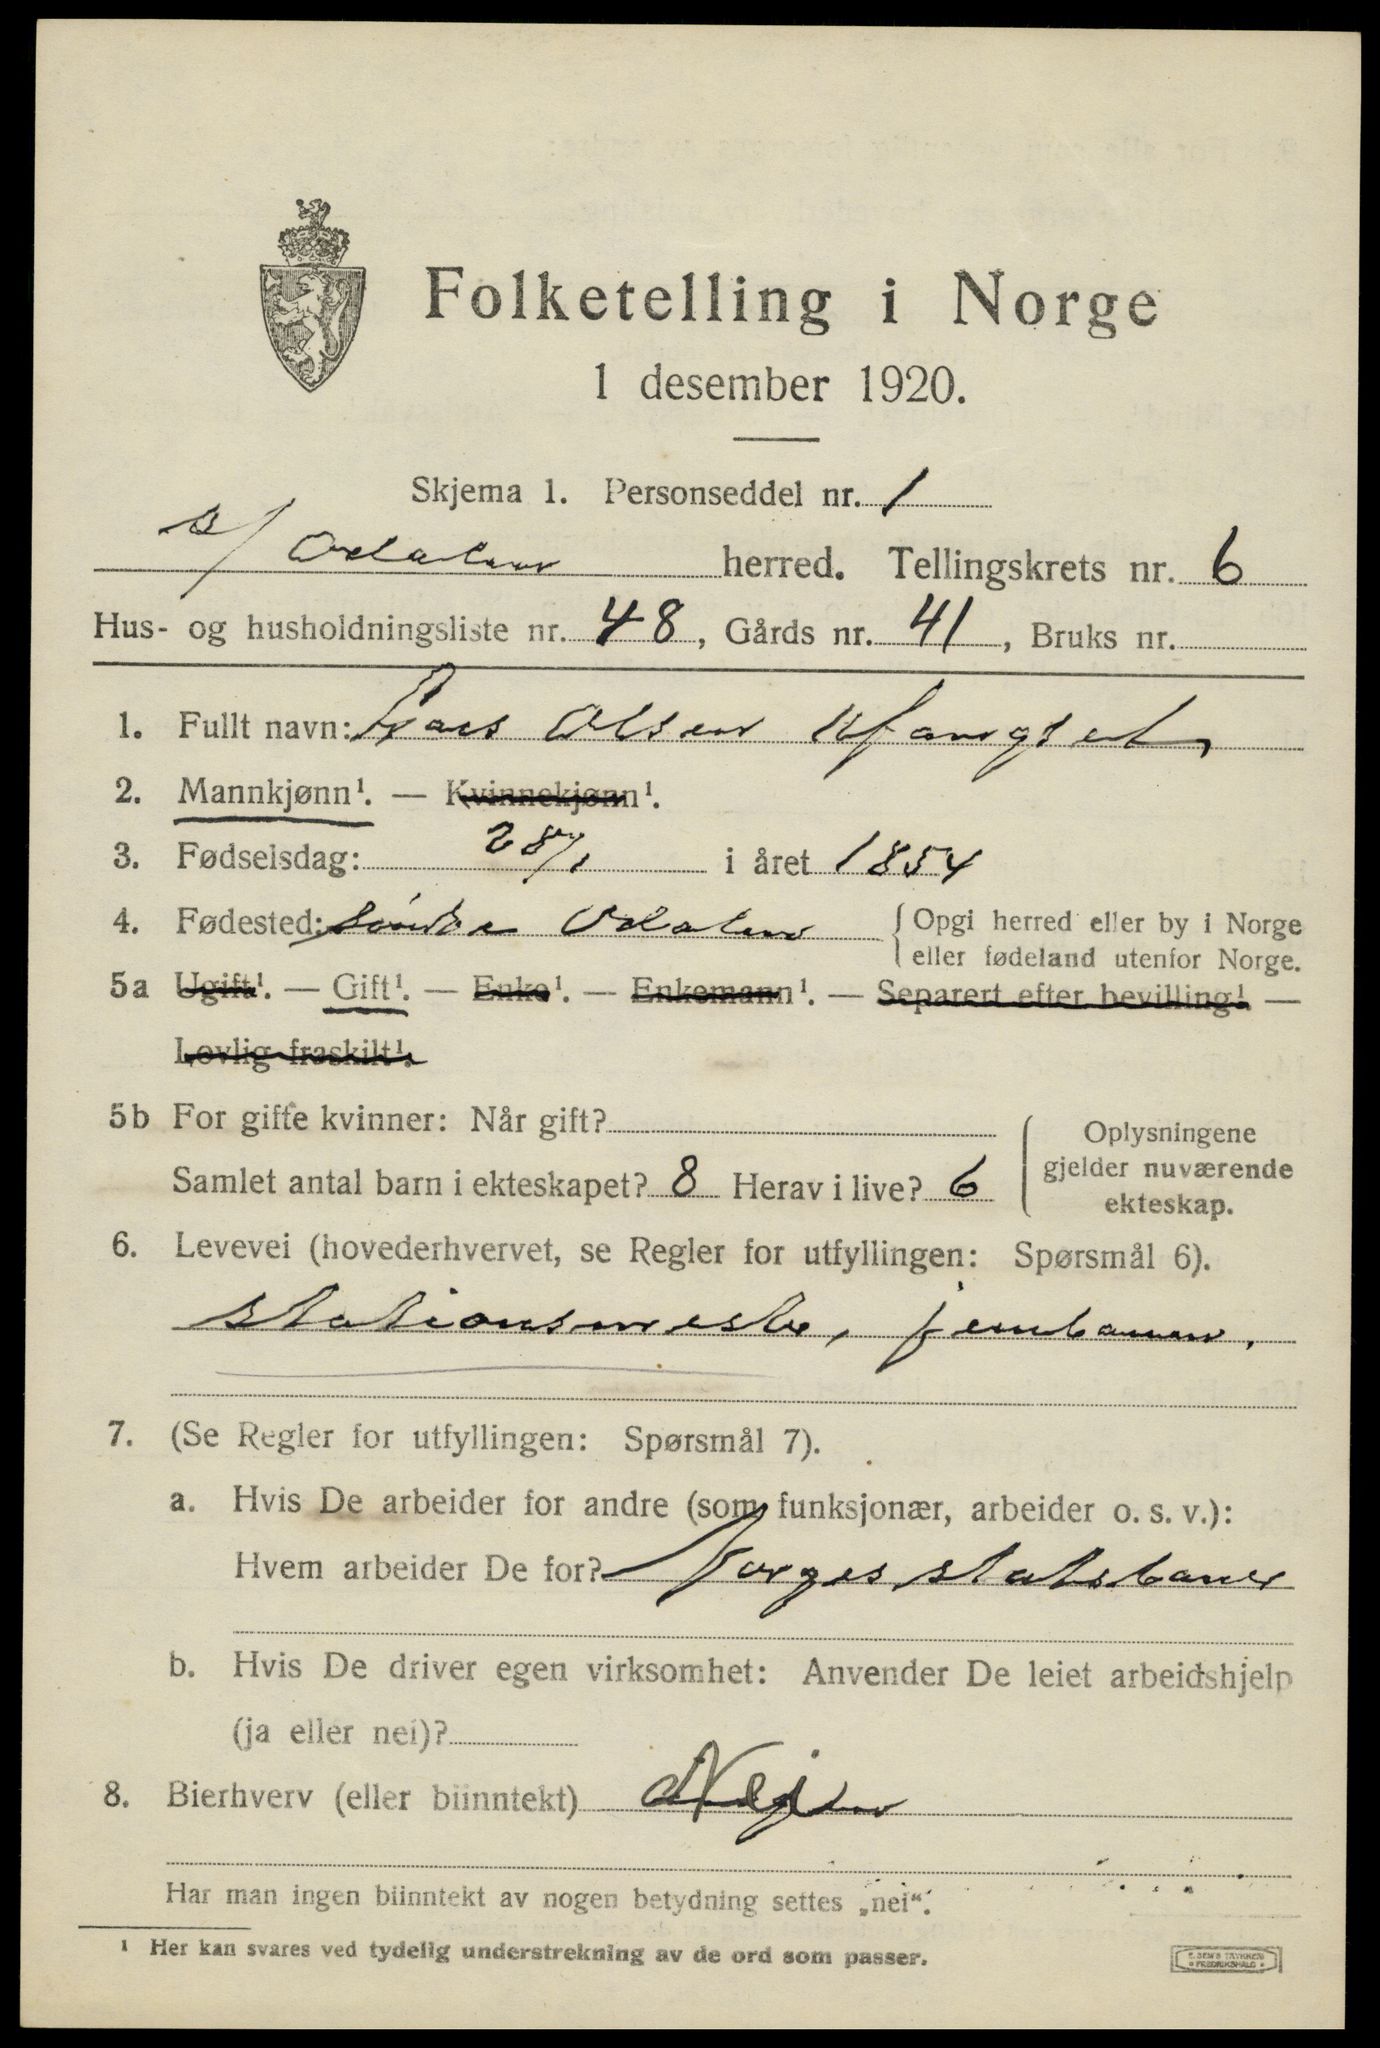 Folketelling i Norge
1 desember 1920.
Skjema 1. Personseddel nr. 1
S/ Odalen herred. Tellingskrets nr. 6
Hus- og husholdningsliste nr. 48, Gårds nr. 41, Bruks nr.
1. Fullt navn: Lars Olsen
2. Mannkjønn¹. — Kvinnekjønn¹.
3. Fødselsdag: 28/1 i året 1854
4. Fødested: Søndre Odalen { Opgi herred eller by i Norge
eller fødeland utenfor Norge.
5a Ugift¹. — Gift¹. — Enke¹. — Enkemann¹. — Separert efter bevilling¹ —
Lovlig fraskilt¹.
5b For gifte kvinner: Når gift?
Samlet antal barn i ekteskapet? 8 Herav i live? 6
Oplysningene
gjelder nuværende
ekteskap.
6. Levevei (hovederhvervet, se Regler for utfyllingen: Spørsmål 6).
Stationsmester, jernbanen.
7. (Se Regler for utfyllingen: Spørsmål 7).
a. Hvis De arbeider for andre (som funksjonær, arbeider o. s. v.):
Hvem arbeider De for? Norges statsbaner
b. Hvis De driver egen virksomhet: Anvender De leiet arbeidshjelp
(ja eller nei)?
8. Bierhverv (eller biinntekt)
Har man ingen biinntekt av nogen betydning settes „nei“.
¹ Her kan svares ved tydelig understrekning av de ord som passer.
FREDRIKSHALD